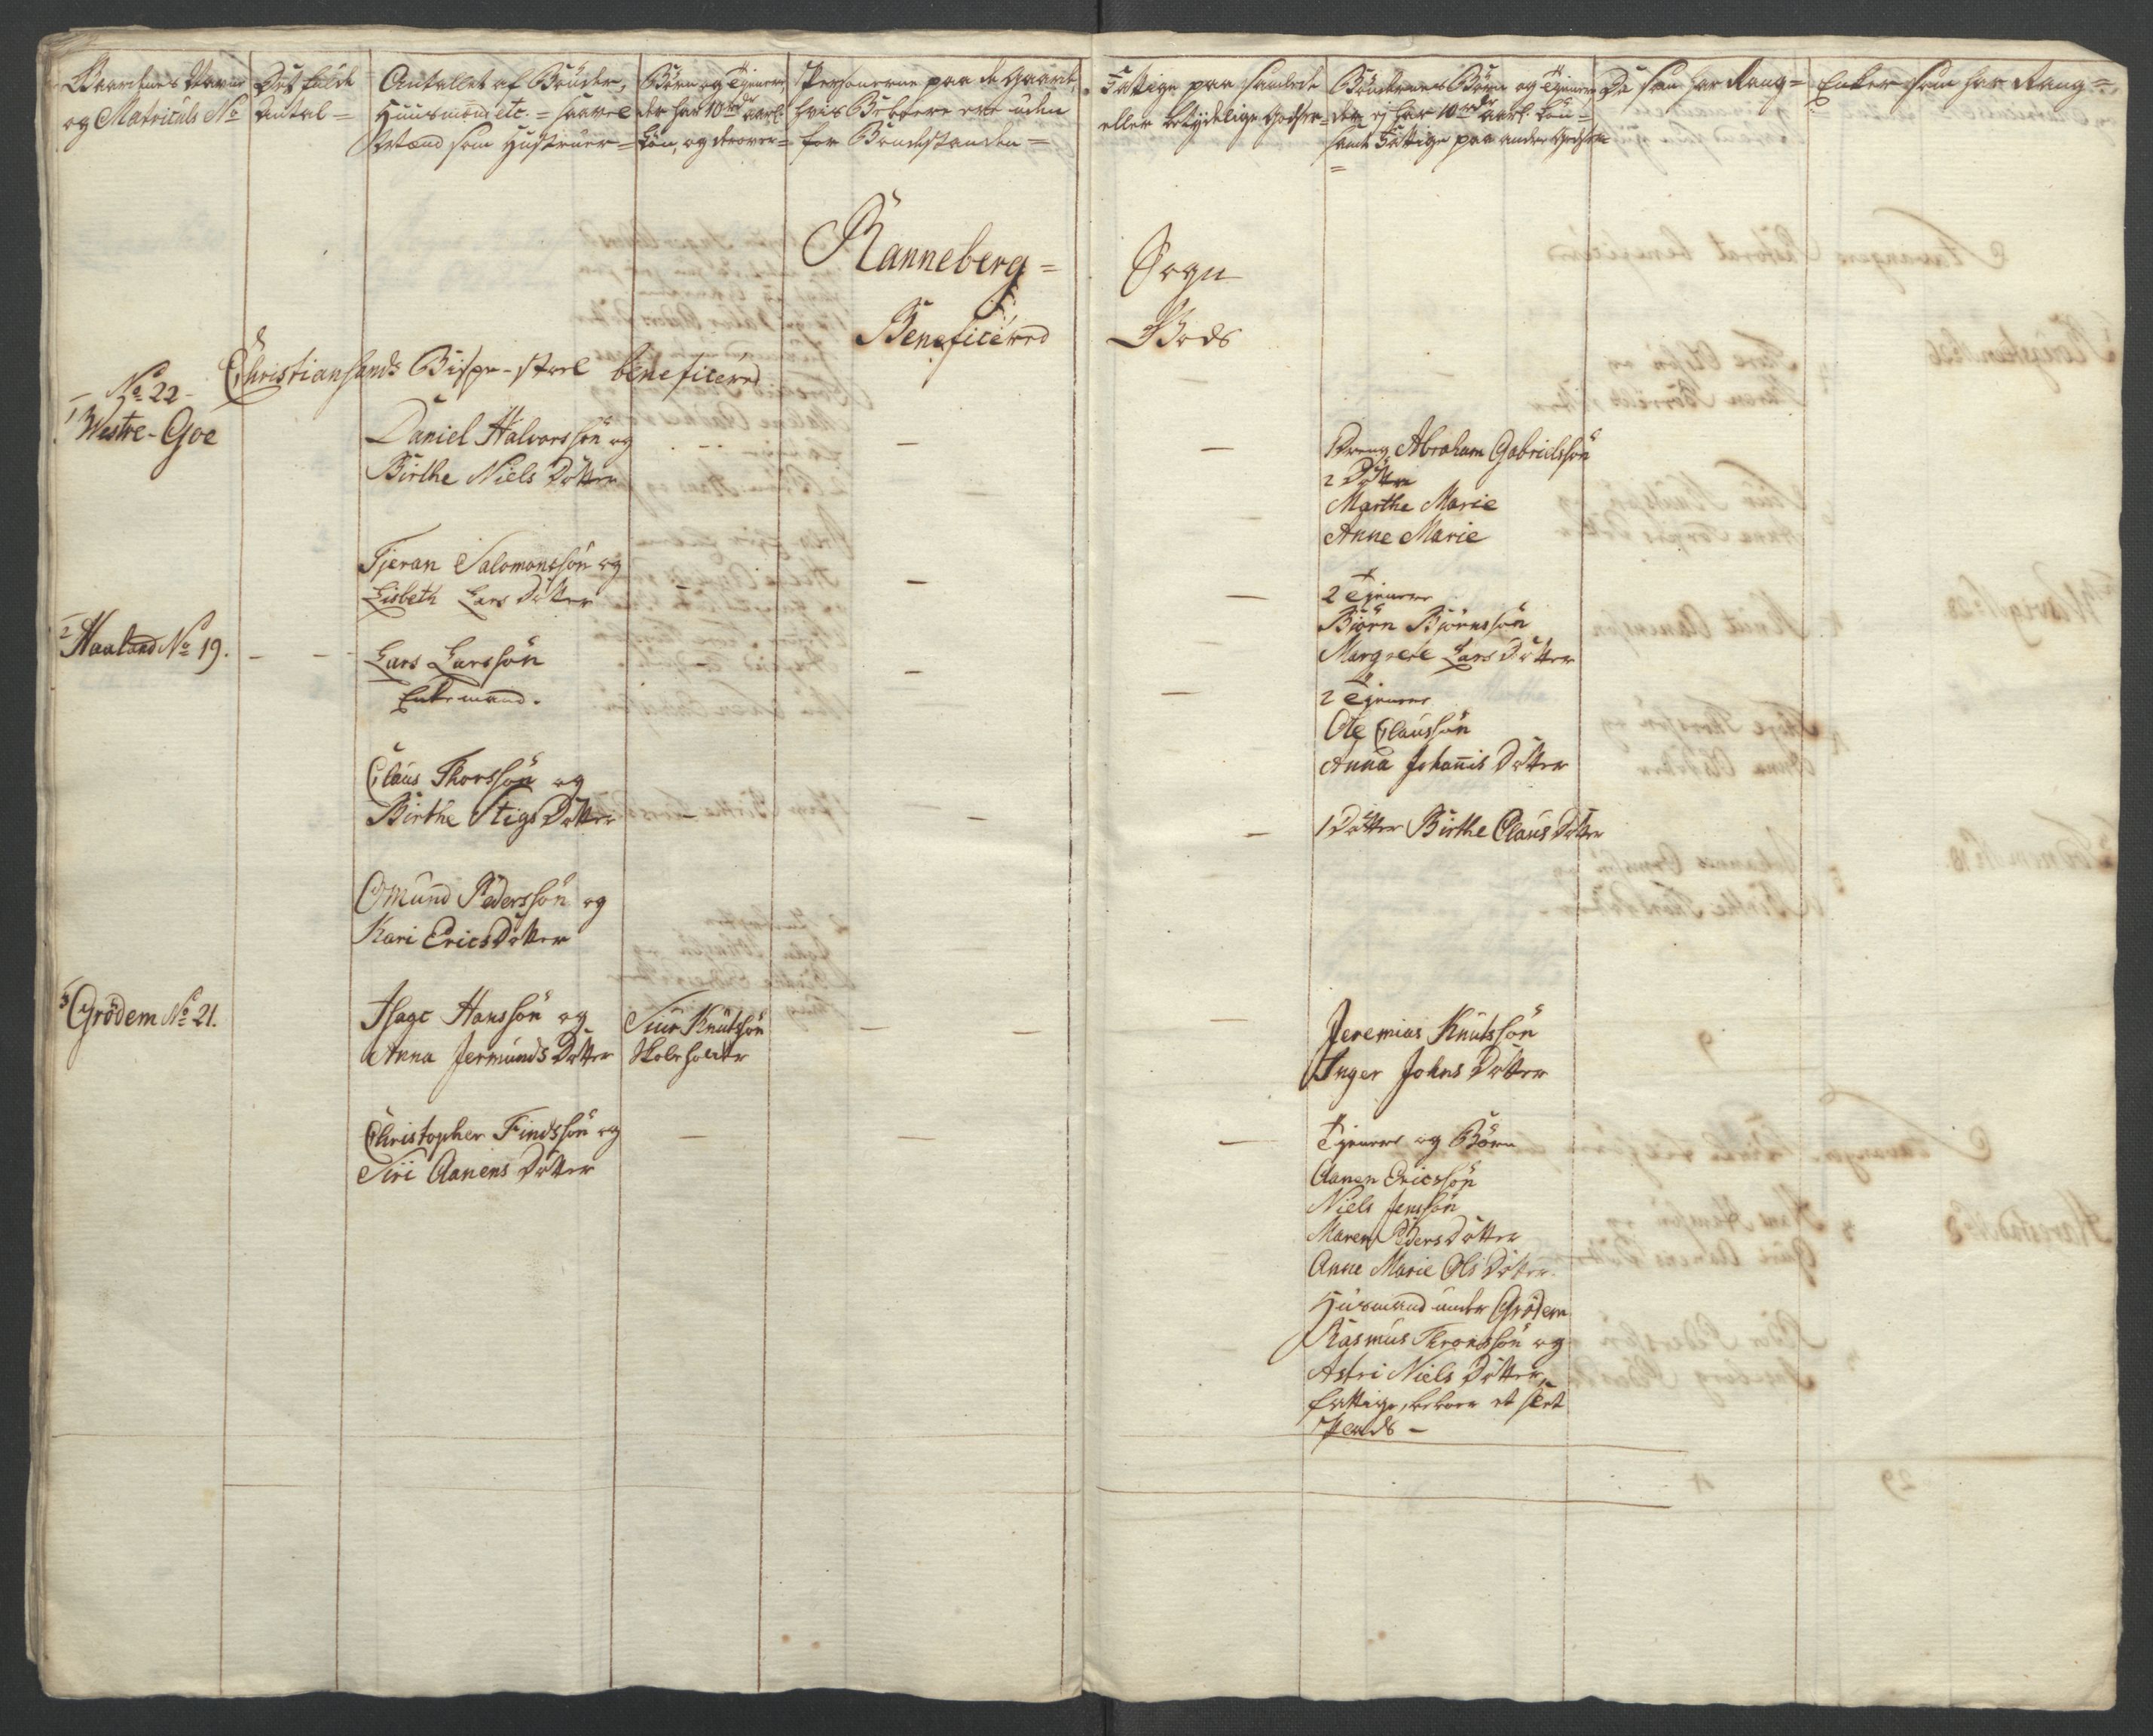 Gaardenes Navne
og Matriculs No
Det fulde
Antal =
Antallet af Bønder,
Huusmænd etc. = saavel
Mænd som Hustruer =
Børn og Tjenere,
der har 10 rdr aarl:
Løn, og derover =
Personerne paa de Gaarde,
hvis Beboere ere uden
for Bondestanden =
Fattige paa samlede
eller betydelige Godser =
Bøndernes Børn og Tjenere,
der ej har 10 rdr aarl. Løn =
samt Fattige paa andre Godser
=
De som har Rang =
Enker som har Rang =
Ranneberg = Sogn
Beneficered Gods
Christiansands Bispe-stoel beneficered
No 22 -
1 Westre-Goe
Daniel Halvorssøn og
Birthe Niels Dotter
1 Dreng Abraham Gabrielssøn
2 Døttre
Marthe Marie
Anne Marie
Tjeran Salomonssøn og
Lisbeth Lars Dotter
2 Tjenere
Biørn Biørnssøn
Margrete Lars Dotter
2 Haaland No 19.
Lars Larssøn
Enkemand.
2 Tjenere
Ole Claussøn
Anna Johannis Dotter
Claus Thorssøn og
Birthe Stigs Dotter
1 Dotter Birthe Claus Dotter
Omund Pederssøn og
Kari Erics Dotter
3 Grödem No 21.
Isaac Hanssøn og
Anna Jermunds Dotter
Siur Knutssøn
Skoleholder
Jeremias Knutssøn
Inger Johns Dotter
Christopher Findssøn og
Siri Aanens Dotter
Tjenere og Børn
Aanen Ericssøn
Niels Jenssøn
Maren Peders Dotter
Anne Marie Ols Dotter
Husmand under Grödem
Rasmus Thronssøn og
Astri Niels Dotter,
fattige, beboer et slet
Plads -